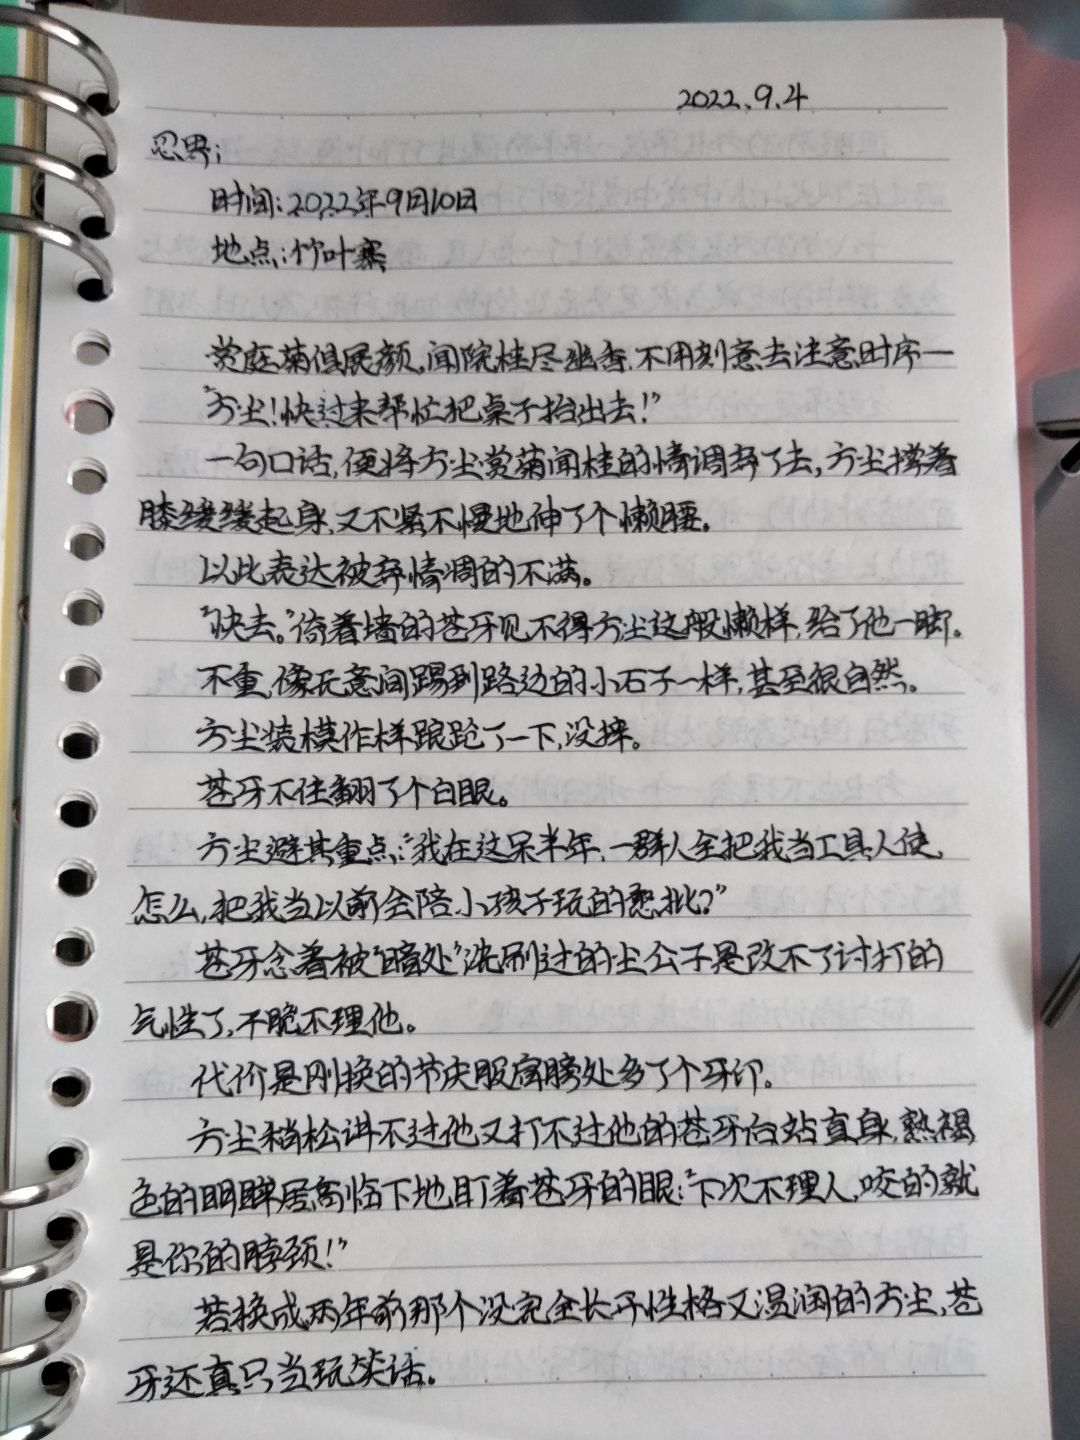 2022.9.4
忍界:
时间:2022年9月10日
地点:竹叶寨
赏庭菊俱展颜,闻院桂尽幽香.不用刻意去注意时序一
“方尘!快过来帮忙把桌子抬出去!”
一句口话,便将方尘赏菊闻桂的情调弃了去,方尘撑着
膝缓缓起身,又不紧不慢地伸了个懒腰。
以此表达被弃情调的不满。
“快去。”倚着墙的苍牙见不得方尘这般懒样,给了他一脚。
不重,像无意间踢到路边的小石子一样,甚至很自然。
方尘装模作样踉跄了一下,没摔。
苍牙不住翻了个白眼。
方尘避其重点:“我在这呆半年,一群人全把我当工具人使,
怎么,把我当以前会陪小孩子玩的憨批?”
苍牙念着被“暗处”洗刷过的尘公子是改不了讨打的
气性了,干脆不理他。
代价是刚换的节庆服肩膀处多了个牙印。
方尘稍松讲不过他又打不过他的苍牙后站直身,熟褐
色的明眸居高临下地盯着苍牙的眼:“下次不理人,咬的就
是你的脖颈!”
若换成两年前那个没完全长开性格又温润的方尘,苍
牙还真只当玩笑话。